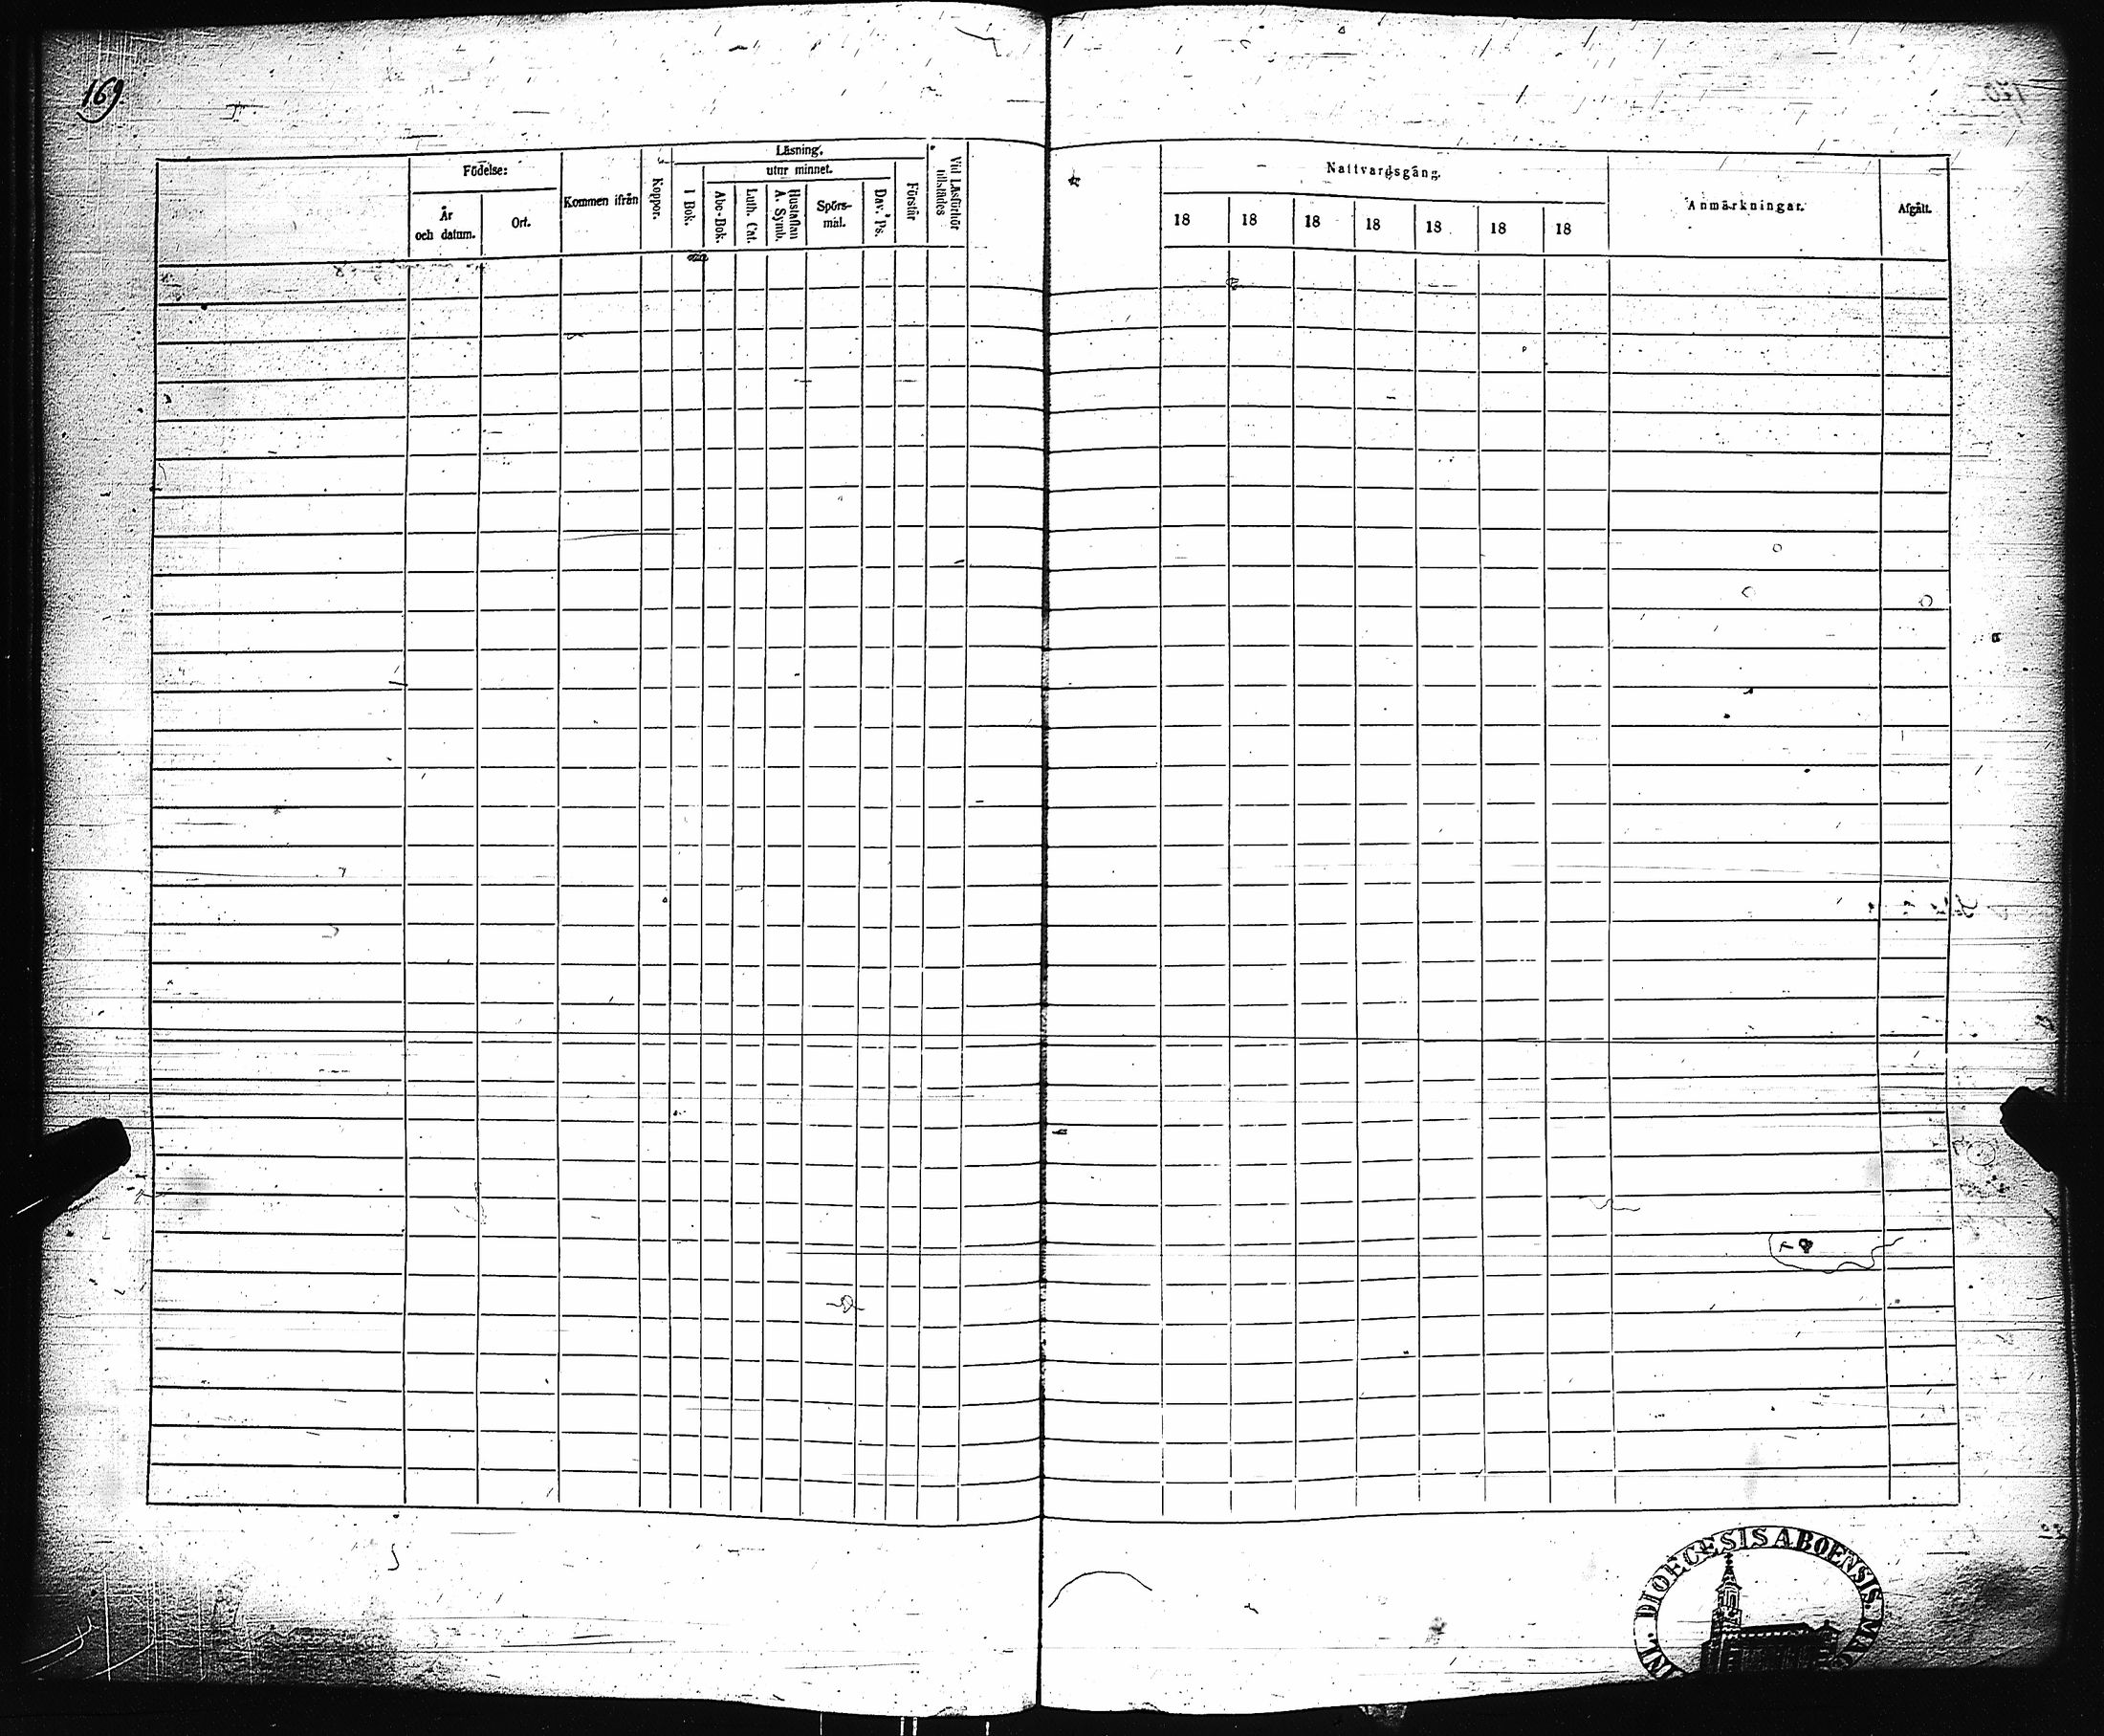 169.
Födelse:
År
och datum.
Ort.
Kommen ifrån
Koppor.
Läsning.
utur minnet.
I Bok.
Abc-Bok.
Luth. Cat.
Hustaflan
A. Symb.
Spörs-
mål.
Dav. Ps.
Förstår
Vid Läsförhör
tillstädes
Nattvardsgång.
18 18 18 18 18 18 18
Anmärkningar.
Afgått.
DIOECESIS ABOENSIS